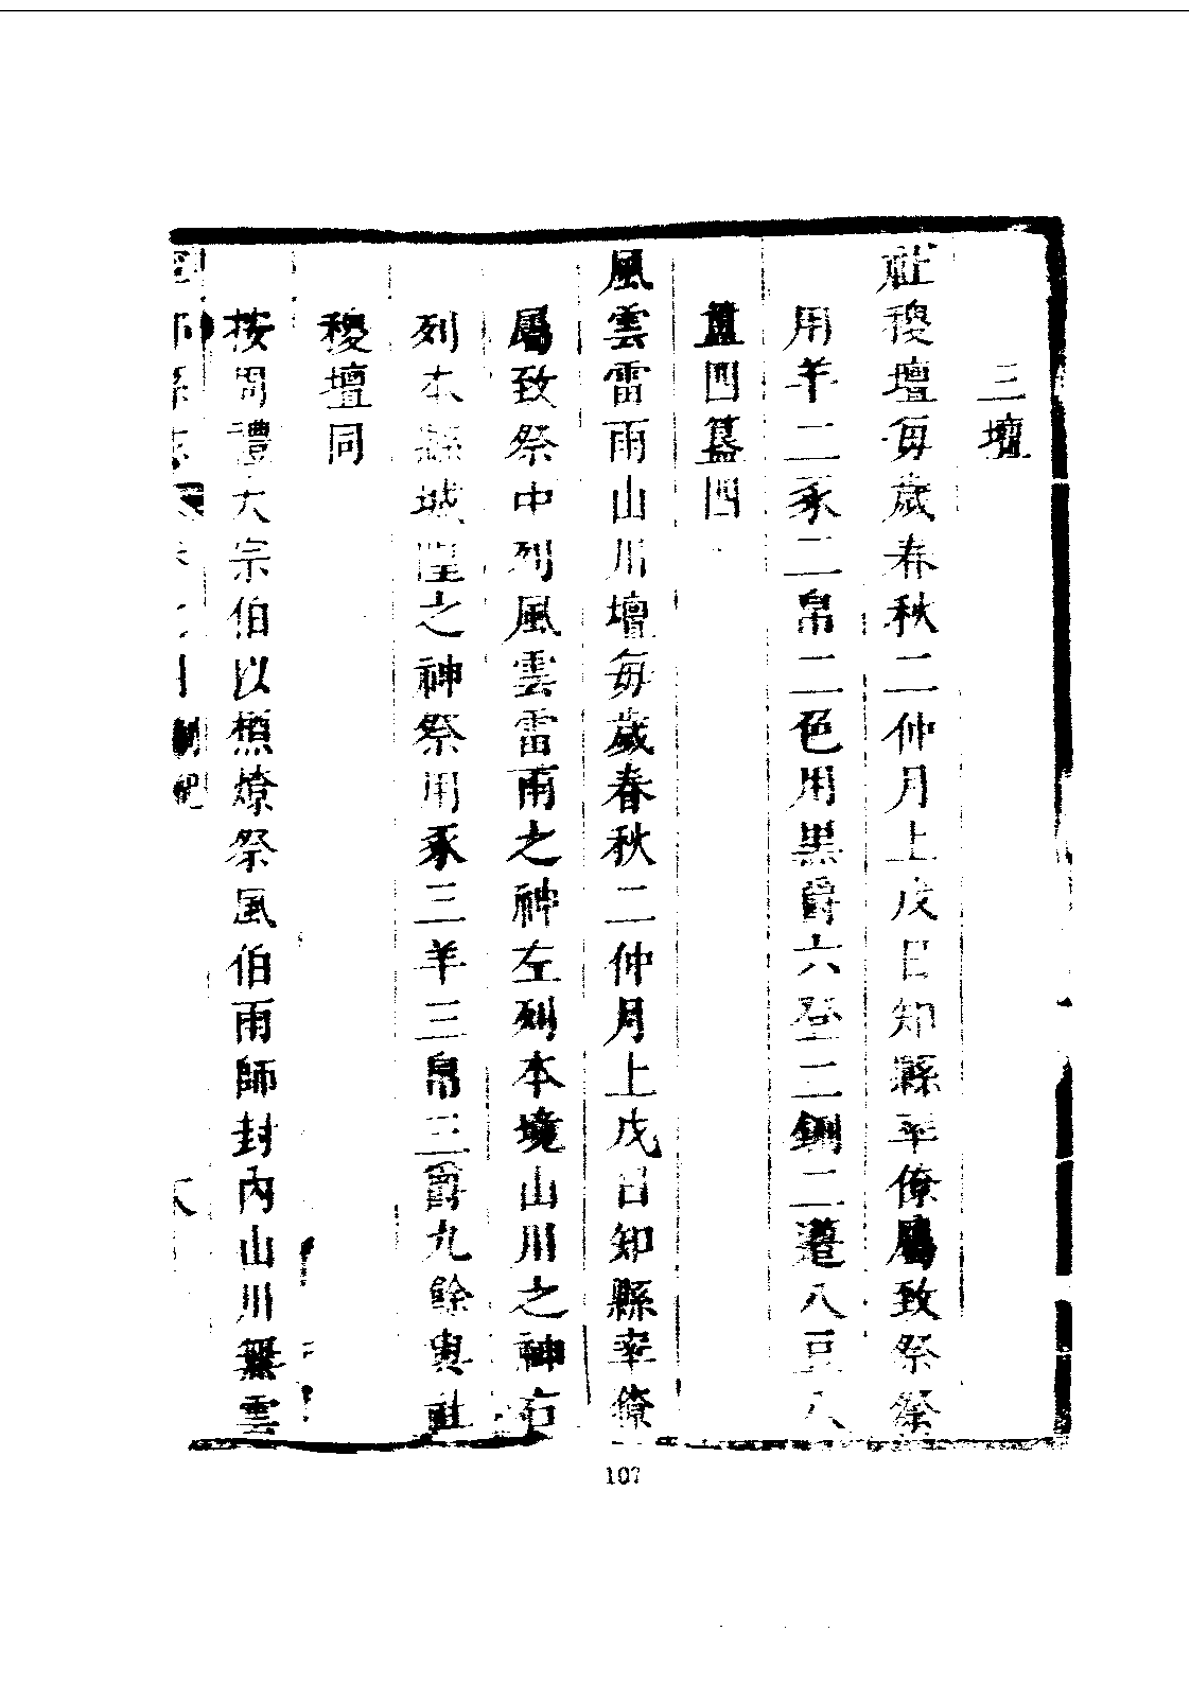 三壇
社稷壇每歲春秋二仲月上戊日知縣率僚屬致祭祭
用羊二豕二帛二色用黑爵六登二鉶二籩八豆八
簠四簋四
風雲雷雨山川壇每歲春秋二仲月上戊日知縣率僚
屬致祭中列風雲雷雨之神左列本境山川之神右
列本縣城隍之神祭用豕三羊三帛三爵九餘與社
稷壇同
按周禮大宗伯以槱燎祭風伯雨師封內山川興雲
師縣志
祀
107